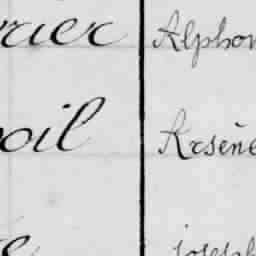 rier Alphon
oil Arsène
joseph